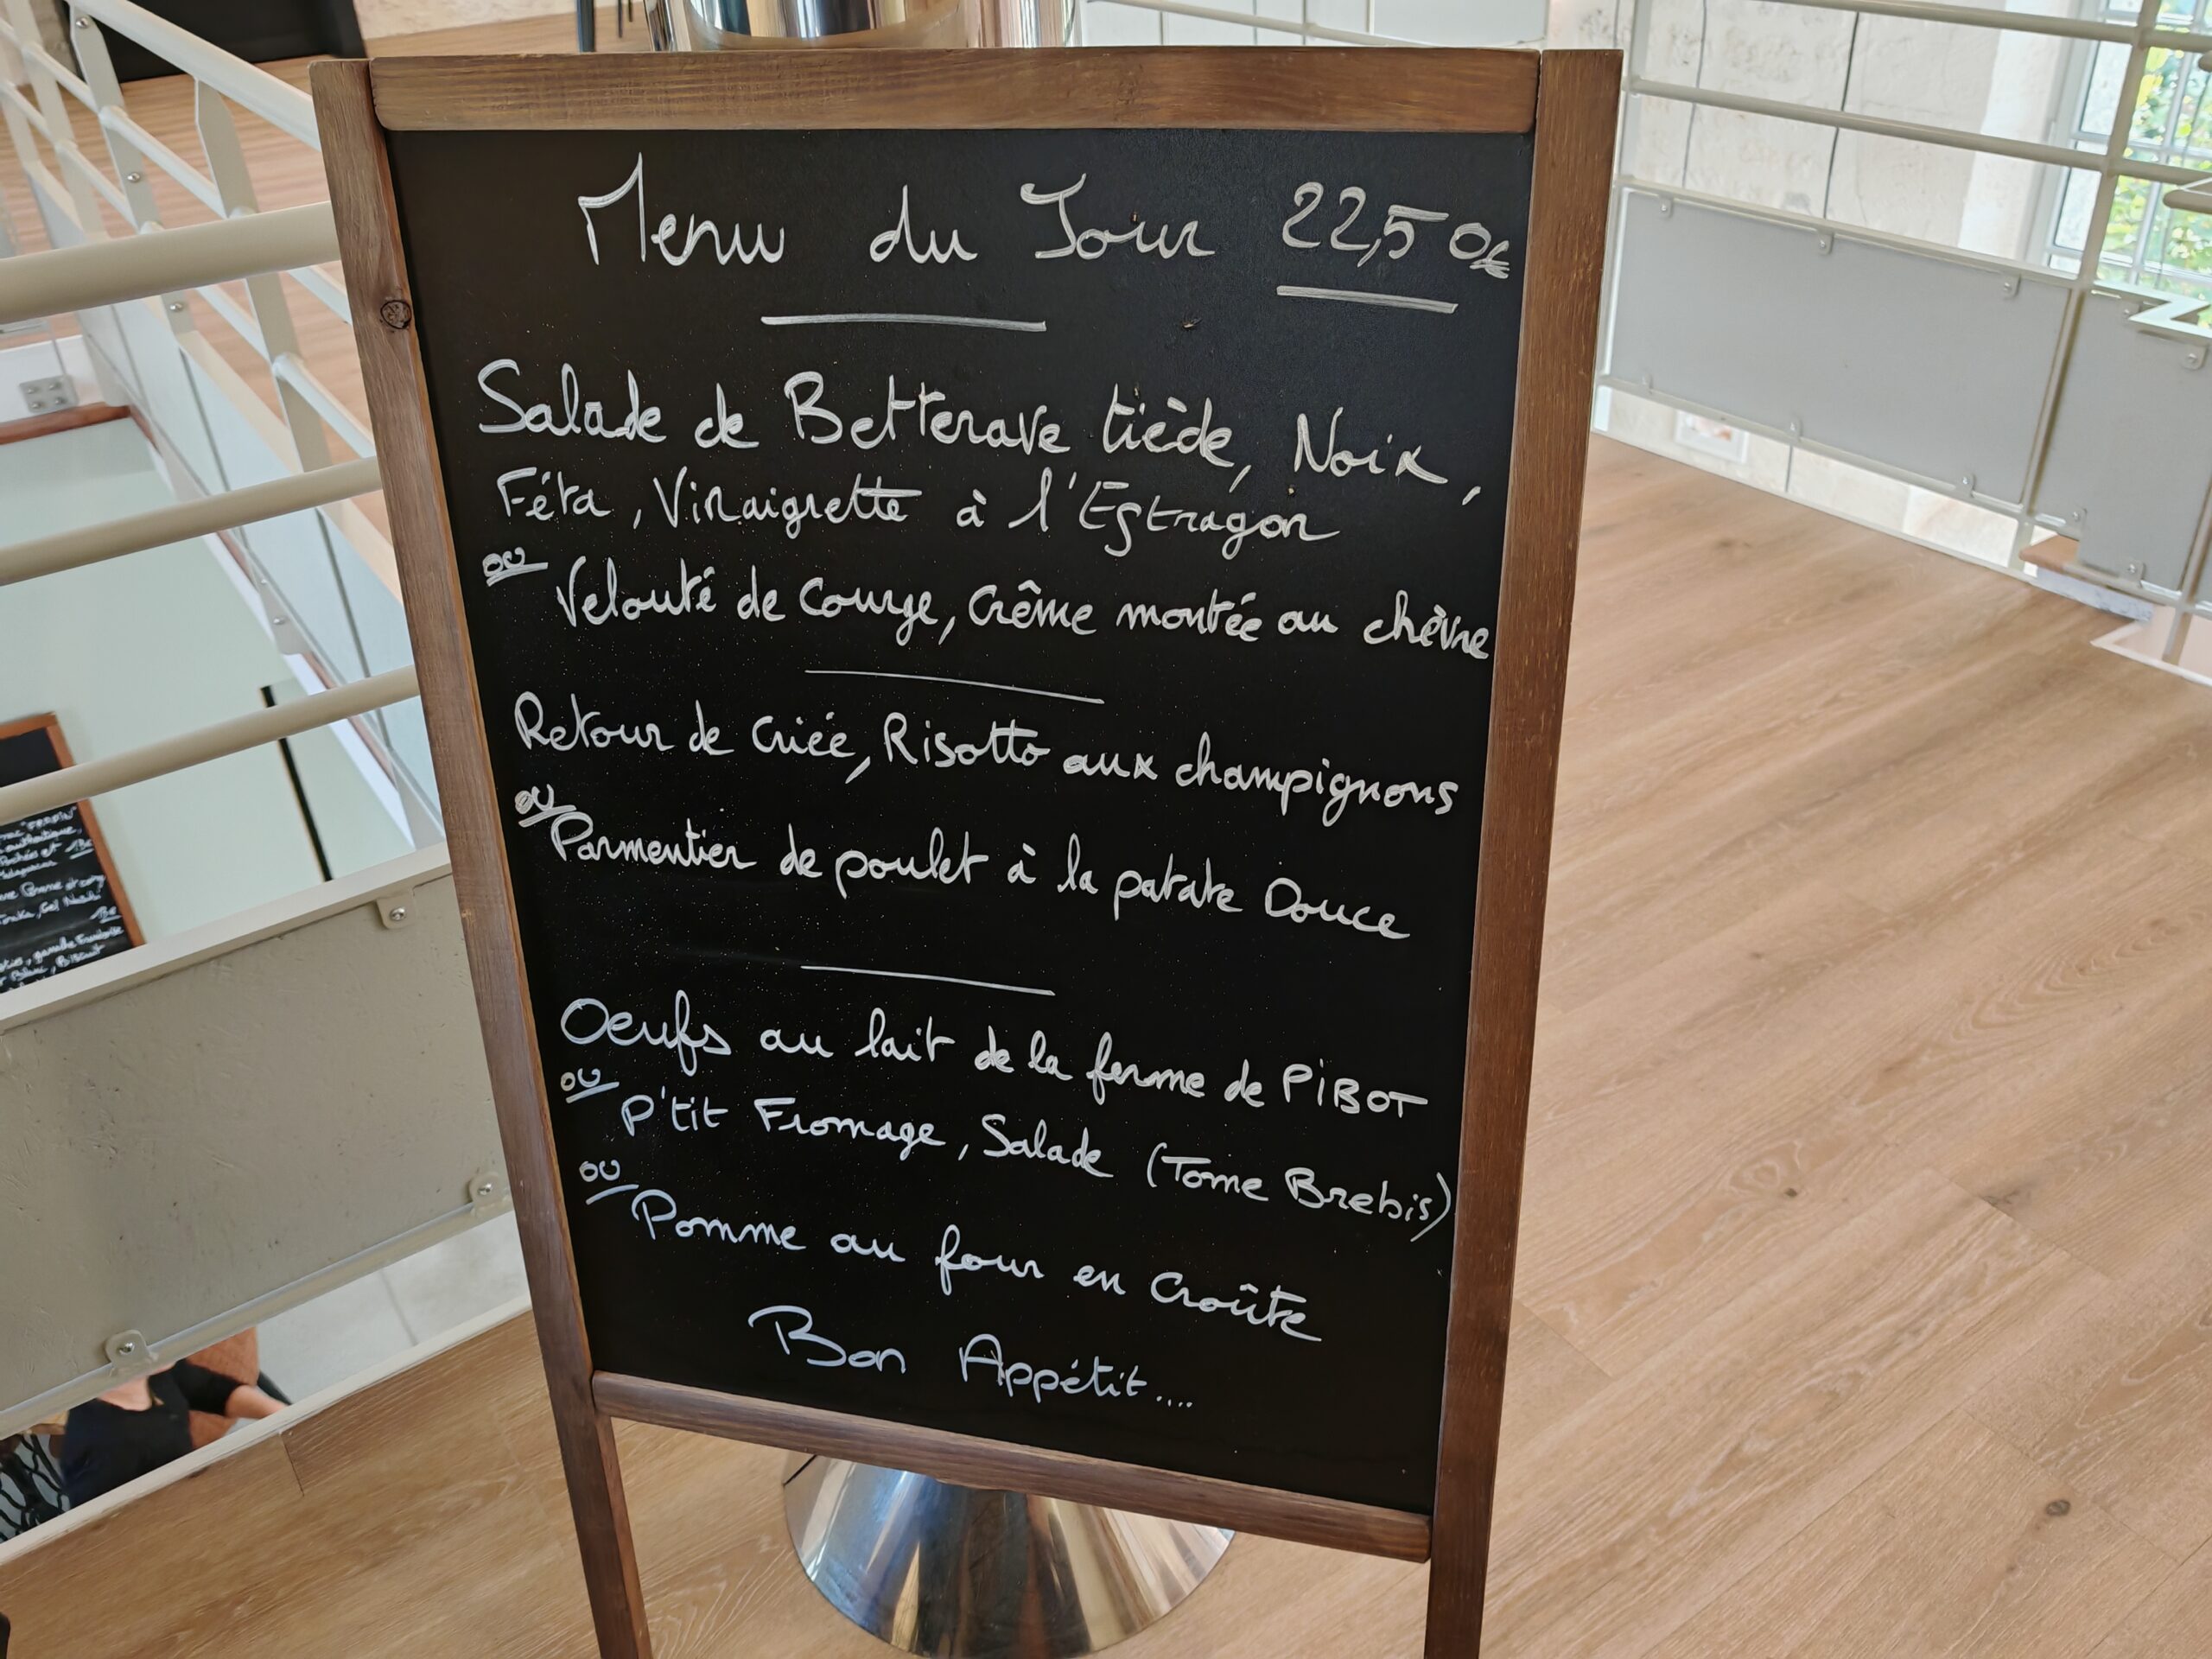 Menu du Jour 22,50€
Salade de Betterave tiède, Noix,
Féta, Vinaigrette à l'Estragon
ou
Velouté de Courge, Crême montée au chèvre
Retour de Criée, Risotto aux champignons
ou
Parmentier de poulet à la patate Douce
Oeufs au lait de la ferme de PiBOT
ou
P'tit Fromage, Salade (Tome Brebis)
ou
Pomme au four en Croûte
Bon Appétit....
authentique,
Pochées et
Madagascar
Tonka, Gel
ganache Framboise
Blanc, Biscuit